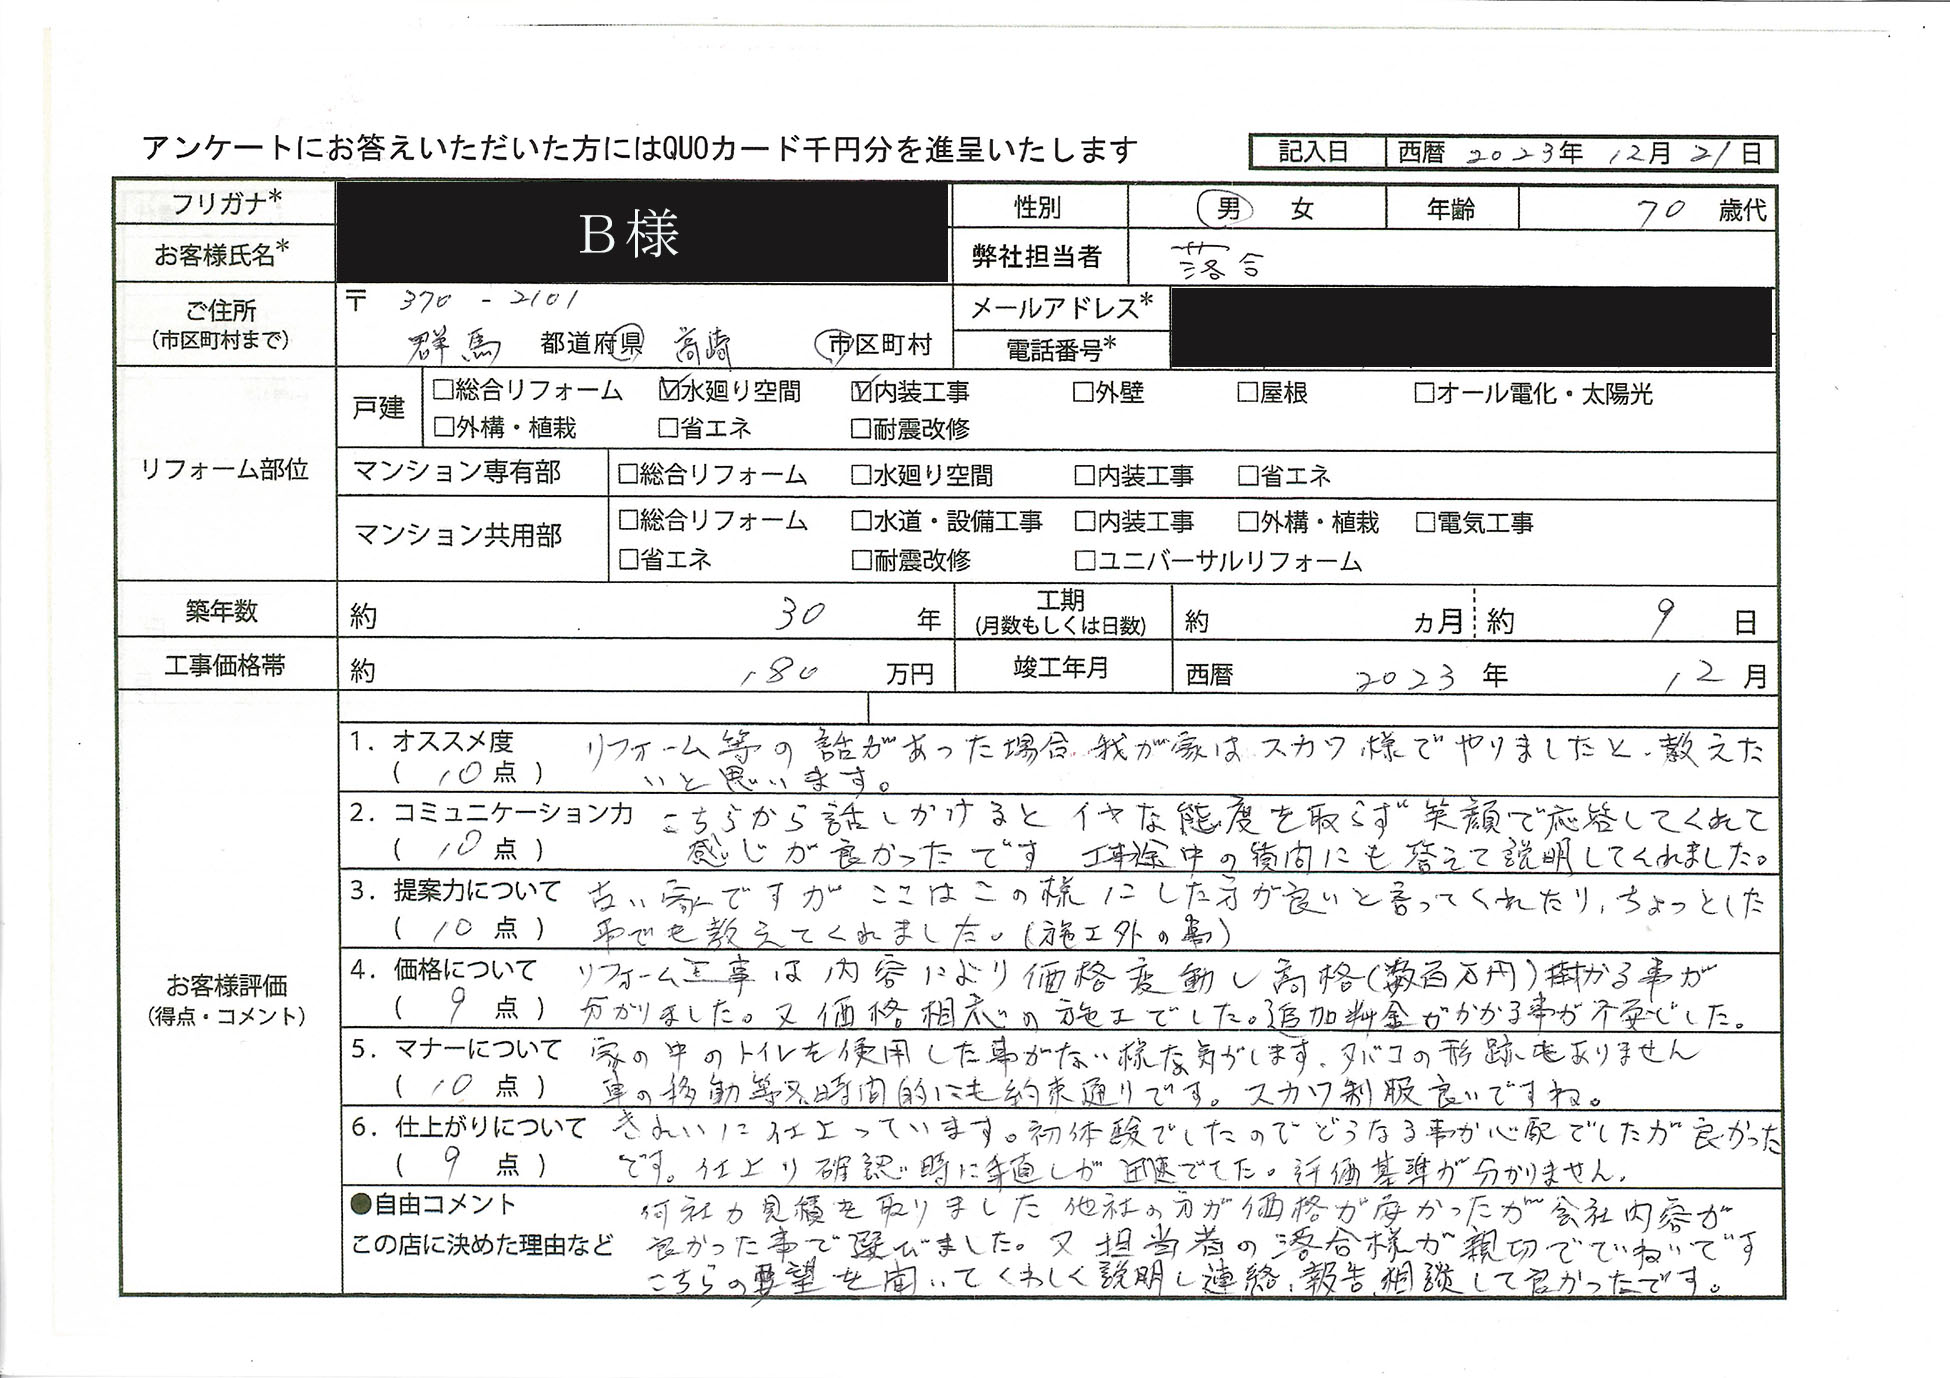 アンケートにお答えいただいた方にはQUOカード千円分を進呈いたします
記入日 西暦 2023年 12月 21日
フリガナ* B様 性別 男 女 年齢 70 歳代
お客様氏名* 弊社担当者 落合
ご住所 (市区町村まで) 〒 370 - 2101 メールアドレス*
群馬 都道府県 高崎 市区町村 電話番号*
リフォーム部位
戸建 □総合リフォーム ☑水廻り空間 ☑内装工事 □外壁 □屋根 □オール電化・太陽光
□外構・植栽 □省エネ □耐震改修
マンション専有部 □総合リフォーム □水廻り空間 □内装工事 □省エネ
マンション共用部 □総合リフォーム □水道・設備工事 □内装工事 □外構・植栽 □電気工事
□省エネ □耐震改修 □ユニバーサルリフォーム
築年数 約 30 年 工期 (月数もしくは日数) 約 ヵ月 約 9 日
工事価格帯 約 180 万円 竣工年月 西暦 2023 年 12 月
お客様評価
(得点・コメント)
1. オススメ度 リフォーム等の話があった場合、我が家はスカワ様でやりましたと、教えた
( 10 点 ) いと思います。
2. コミュニケーション力 こちらから話しかけるとイヤな態度を取らず笑顔で応答してくれて
( 10 点 ) 感じが良かったです 工事途中の質問にも答えて説明してくれました。
3. 提案力について 古い家ですがここはこの様にした方が良いと言ってくれたり、ちょっとした
( 10 点 ) 事でも教えてくれました。(施工外の事)
4. 価格について リフォーム工事は内容により価格変動し高格(数百万円)掛かる事が
( 9 点 ) 分かりました。又価格相応の施工でした。追加料金がかかる事が不安でした。
5. マナーについて 家の中のトイレを使用した事がない様な気がします、タバコの形跡もありません
( 10 点 ) 車の移動等も時間的にも約束通りです。スカワ制服良いですね。
6. 仕上がりについて きれいに仕上っています。初体験でしたのでどうなる事か心配でしたが良かった
( 9 点 ) です。仕上り確認時に手直しが迅速でした。評価基準が分かりません。
●自由コメント 何社か見積を取りました他社の方が価格が安かったが会社内容が
この店に決めた理由など 良かった事で選びました。又担当者の落合様が親切でていねいです
こちらの要望を聞いてくわしく説明し連絡、報告、相談して良かったです。